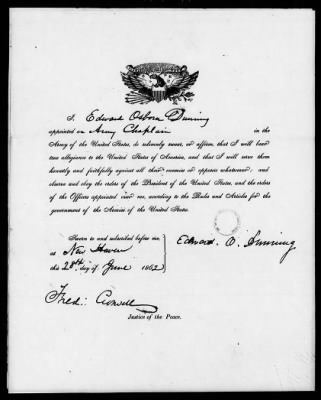 I, Edward Osborn Dunning
appointed an Army Chaplain in the
Army of the United States, do solemnly swear, or affirm, that I will bear
true allegiance to the United States of America, and that I will serve them
honestly and faithfully against all their enemies or opposers whatsoever; and
observe and obey the orders of the President of the United States, and the orders
of the Officers appointed over me, according to the Rules and Articles for the
government of the Armies of the United States.
Sworn to and subscribed before me,
at New Haven
this 28th day of June 1862
Edward O. Dunning
Fred:
Justice of the Peace.